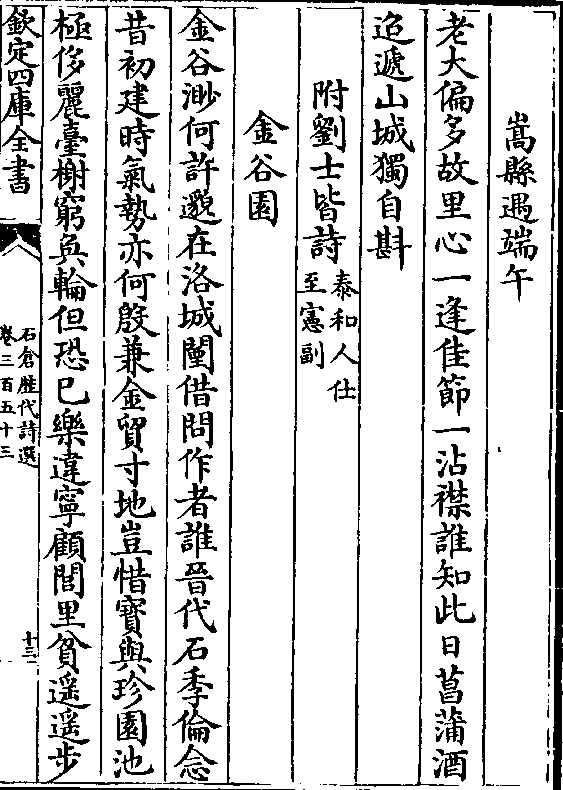 嵩縣遇端午
老大偏多故里心一逢佳節一沾襟誰知此日菖蒲酒
迢遞山城獨自斟
附劉士皆詩泰和人仕至憲副
金谷園
金谷渺何許邈在洛城闉借問作者誰晉代石季倫念
昔初建時氣勢亦何殷兼金貿寸地豈惜寳與珍園池
極侈麗臺榭窮奐輪但恐已樂違寧顧閭里貧遥遥步
欽定四庫全書
石倉歴代詩選
卷三百五十三
十三